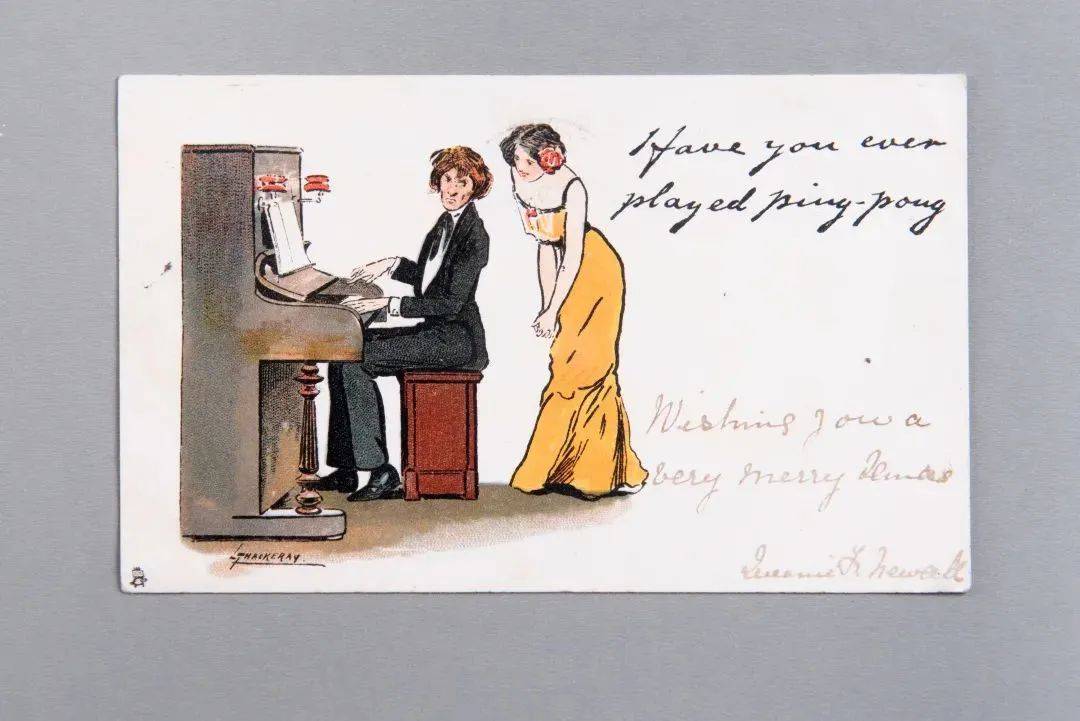 Have you ever
played ping-pong
Wishing you a
very merry Xmas
L Thackeray.
Newall